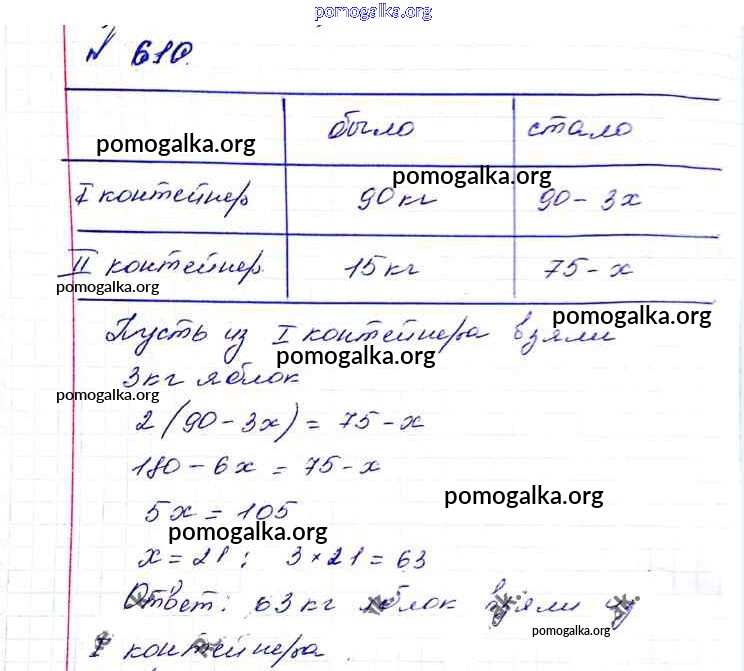 pomogalka.org
№ 610.
было стало
pomogalka.org
pomogalka.org
I контейнер 90 кг 90 - 3x
II контейнер. 15 кг 75 - x
pomogalka.org
pomogalka.org
Пусть из I контейнера взяли
pomogalka.org
3кг яблок
pomogalka.org
2(90 - 3x) = 75 - x
180 - 6x = 75 - x
pomogalka.org
5x = 105
pomogalka.org
x = 21; 3 × 21 = 63
Ответ: 63 кг яблок взяли из
pomogalka.org
I контейнера.